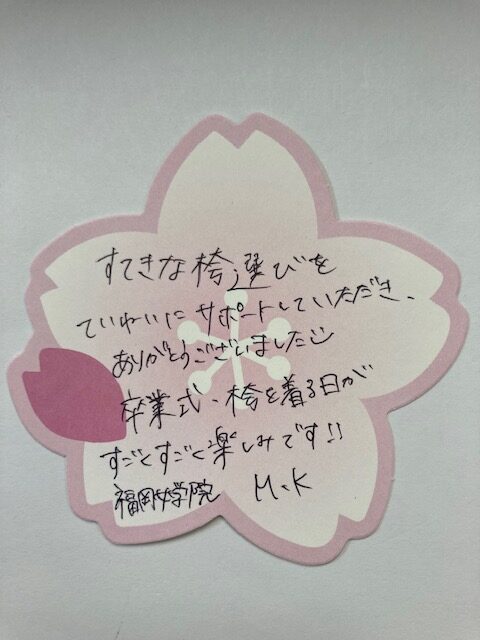 すてきな袴選びを
ていねいにサポートしていただき、
ありがとうございました
卒業式、袴を着る日が
すごくすごく楽しみです!!
福岡女学院 M.K